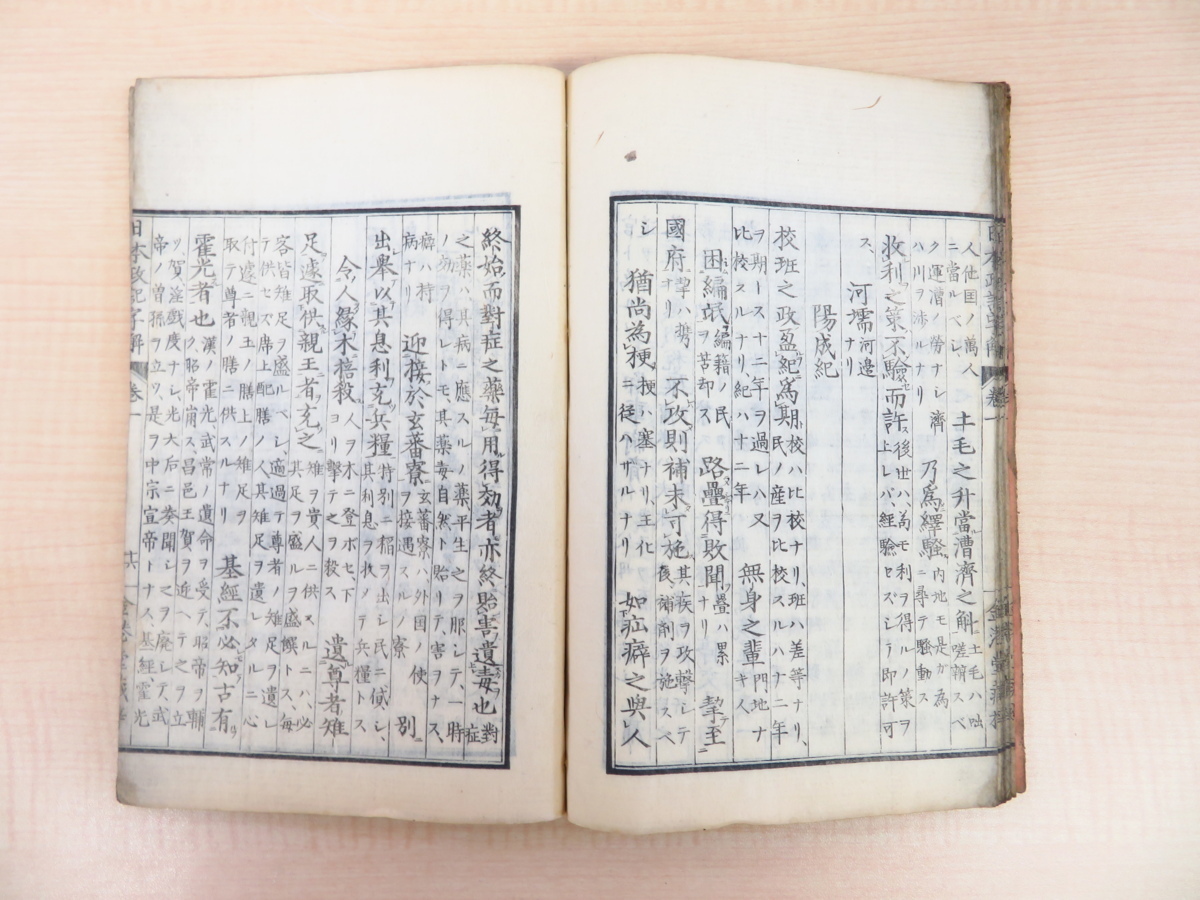 人他国ノ萬人 土毛之升當漕濟之斛 土毛ハ
ニ當ルベシ
ク運漕ノ勞ナシ濟 乃爲繹騷 内地モ是カ為
ハ川ヲ渉ルナリ ニ尋テ騒動ス
收利之策不驗而許 後世ハ萬モ利ヲ得ルノ策ヲ
上レバ經驗セズシテ即許可
ス
河壖 河邉
ナリ
陽成紀
校班之政盈紀爲期 校ハ比校ナリ、班ハ差等ナリ、
民ノ産ヲ比校スルハナ二年
ヲ期一ス十二年ヲ過レハ又 無身之輩 門地ナ
比校スルナリ、紀ハ十二年 キ人
困編氓 編籍ノ民 路疊得敗聞 疊ハ累 摯至
ヲ苦却ス ナリ
國府 摯ハ携 不攻則補未可施 其疾ヲ攻撃シテ
ナリ 後補劑ヲ施スベ
シ 猶尚為梗 梗ハ塞ナリ、王化 如疝癖之與人
ニ從ハザルナリ
終始而對症之藥毎用得効者亦終貽害遺毒也 對
症
之藥ハ、其病ニ應スルノ藥平生之ヲ服シテ、一時
ノ効ヲ得レトモ、其藥毒自然ト貽リテ、害ヲナス、
癖ハ持 迎接於玄蕃寮 玄蕃寮ハ外国ノ使 別
病ナリ ヲ接遇スルノ寮
出舉以其息利充兵糧 特別ニ稲ヲ出シ民ニ貸シ、
其利息ヲ收ノテ兵糧トス
令人緣木掊殺 人ヲ木ニ登ボセ、下 遺尊者雉
ヨリ撃テ之ヲ殺ス
足遽取供親王者充之 雉ヲ貴人ニ供スルニハ、必
其足ヲ盛ルヲ盛饌トス、毎
客皆雉足ヲ盛ルベシ、適過テ尊者ノ雉足ヲ遺レ
テ供セズ、席上配膳ノ人其雉足ヲ遺レタルニ心
付遽ニ親王ノ膳上ノ雉足ヲ 基經不必知古有
取テ尊者ノ膳ニ供スルナリ
霍光者也 漢ノ霍光武帝ノ遺命ヲ受テ、昭帝ヲ輔
ク、昭帝崩ス、昌邑王賀ヲ迎ヘテ之ヲ立
ツ、賀淫戯度ナシ、光大后ニ奏聞シテ之ヲ廃シテ、武
帝ノ曽孫ヲ立ツ、是ヲ中宗宣帝トナス、基經、霍光
日本政記字解 巻一 十六